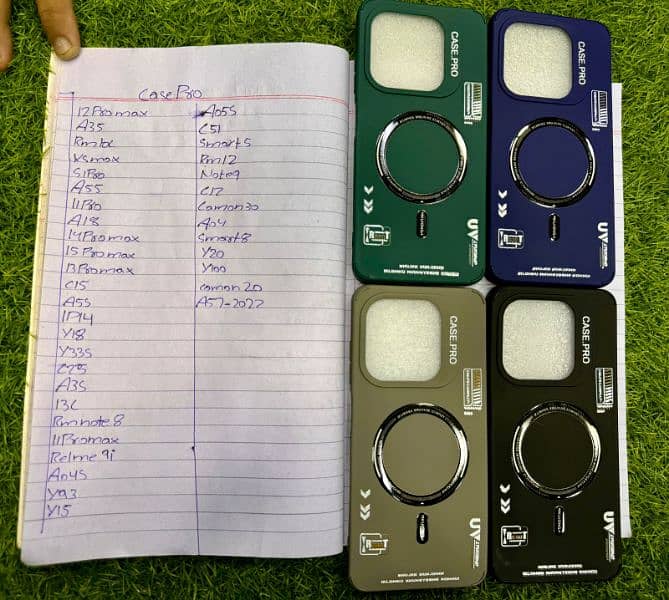 Case Pro
12 Promax
A35
Rm10c
Xsmax
S1Pro
A55
11Pro
A18
14Promax
15 Promax
13 Promax
C15
A5S
IP14
Y18
Y33S
A3S
13C
Rm note 8
11 Promax
Relme 9i
A04S
Y93
Y15
A05S
C51
Smart 5
Rm12
Note 9
C12
Camon 30
A04
Smart 8
Y20
Y100
camon 20
A57-2022
CASE.PRO
UV
CASE.PRO
UV
CASE.PRO
UV
CASE.PRO
UV